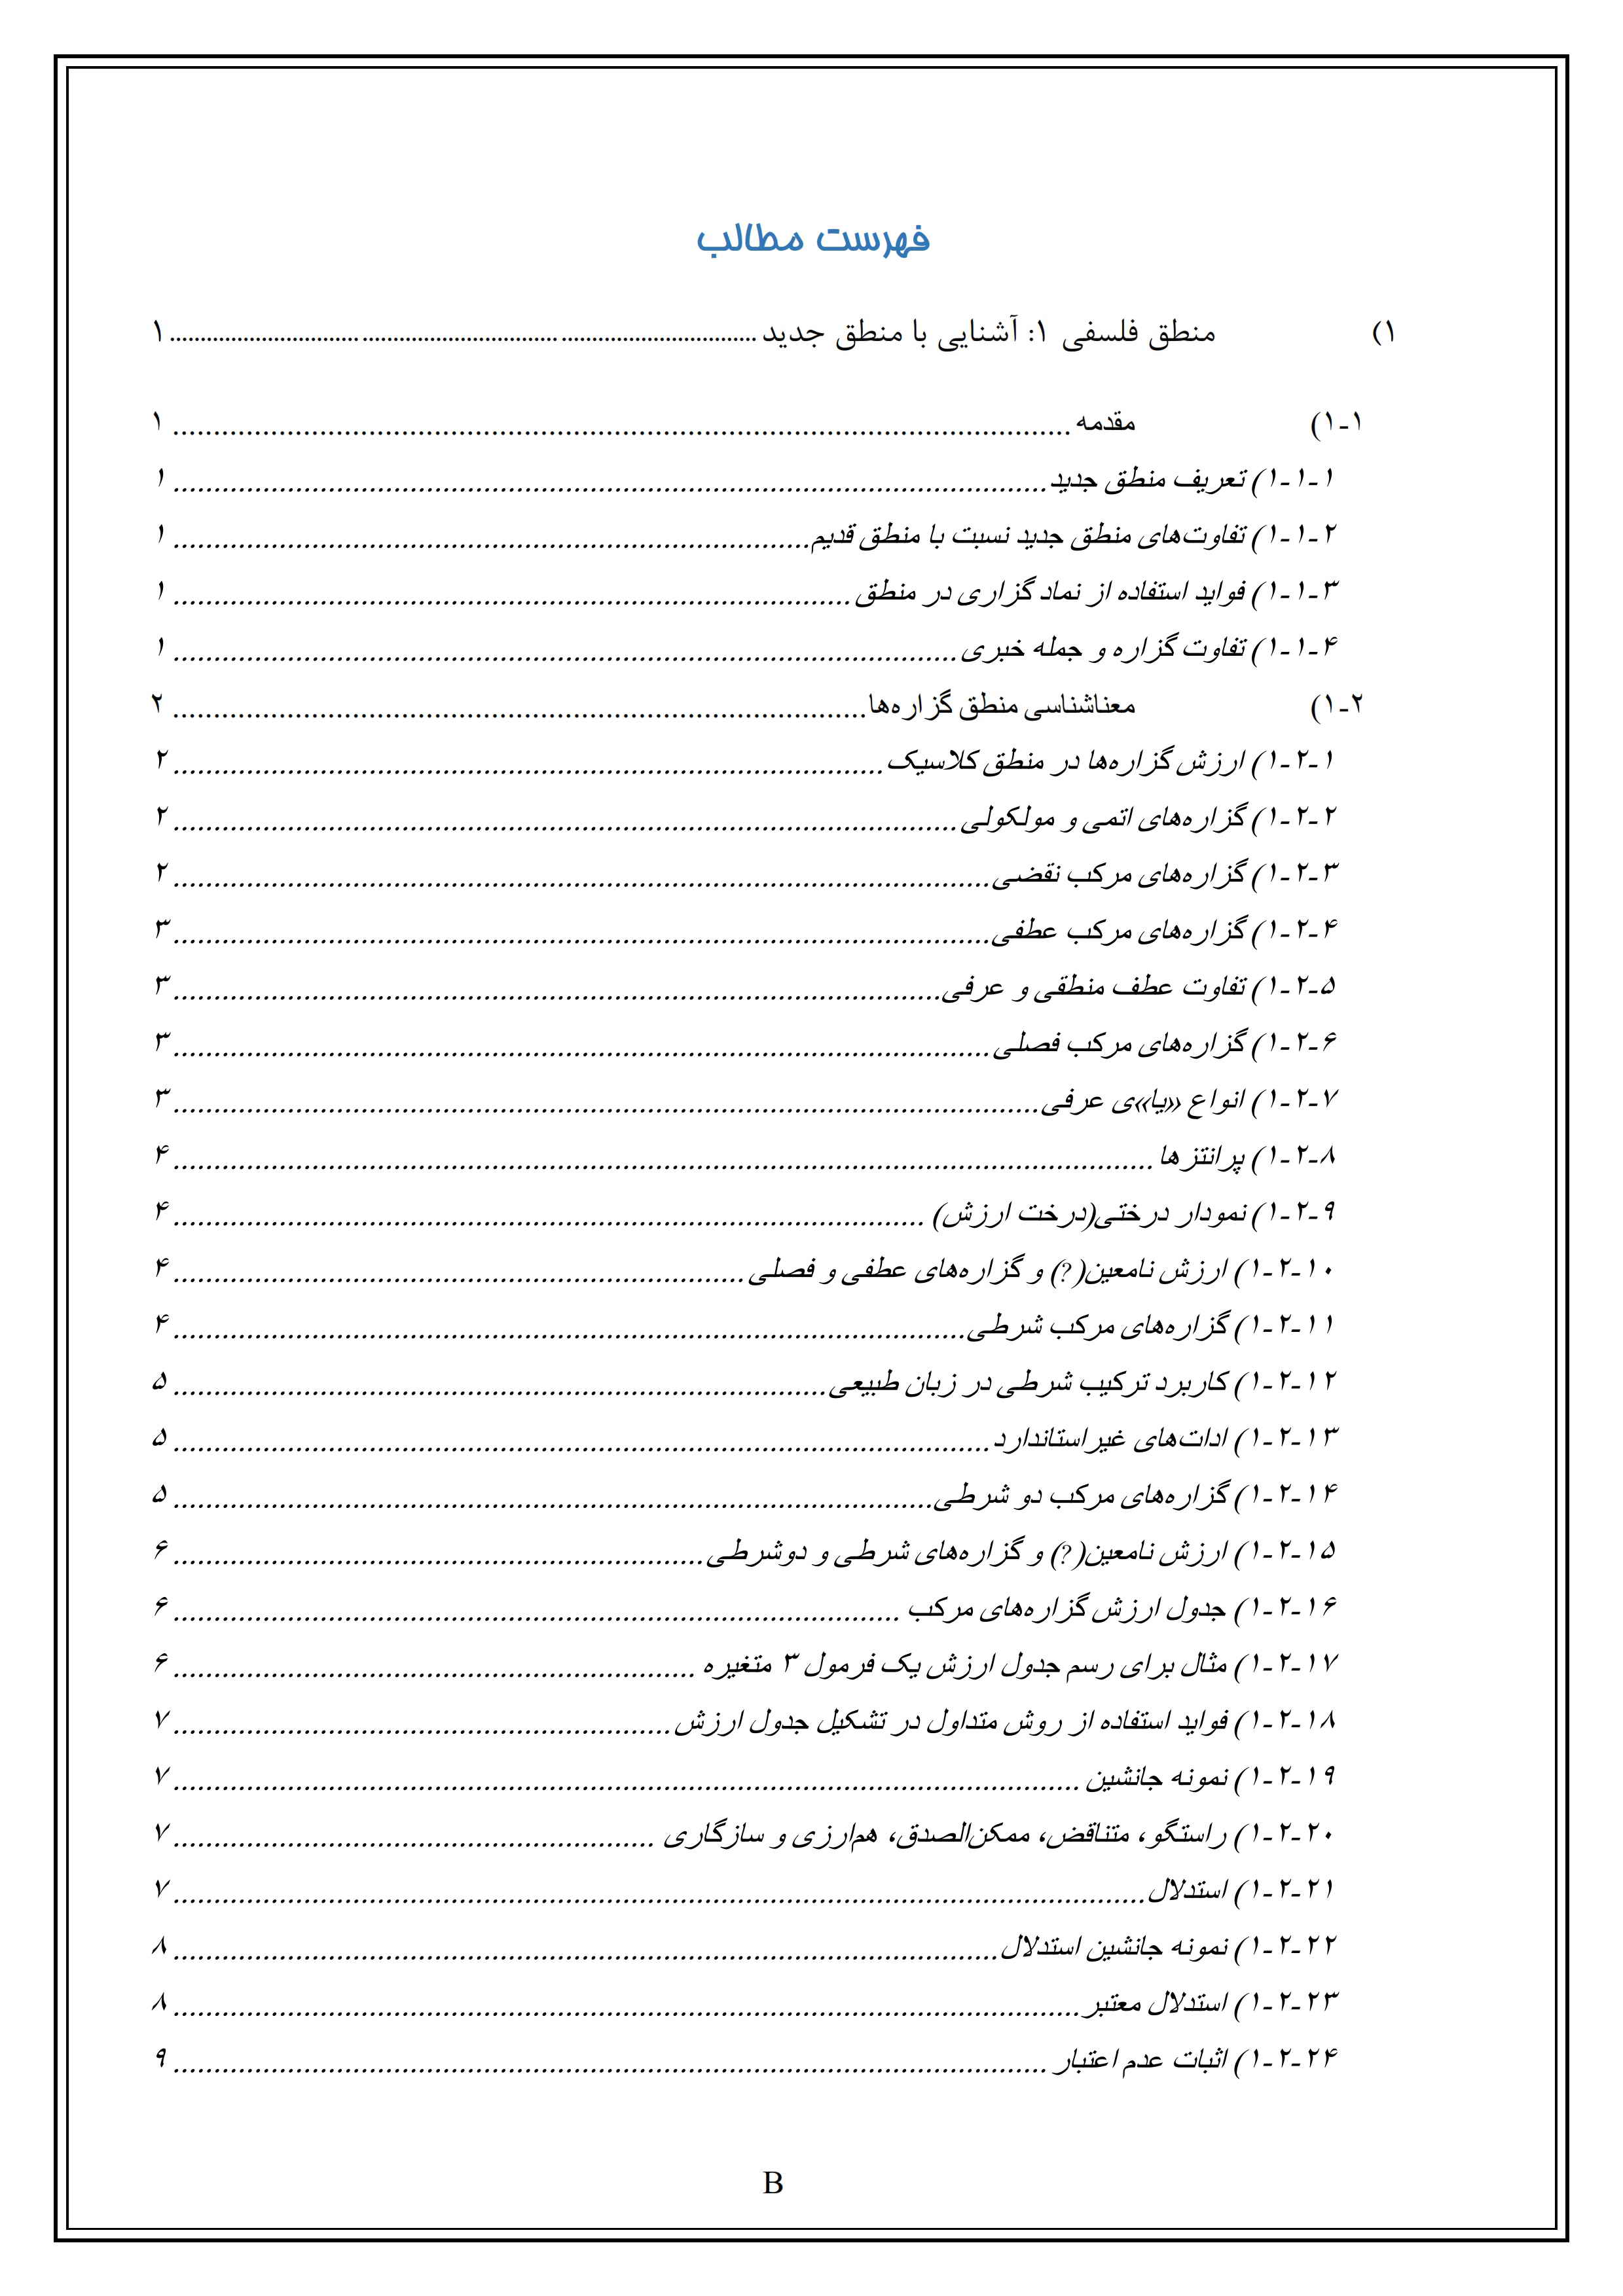 فهرست مطالب
۱) منطق فلسفی ۱: آشنایی با منطق جدید ........ ۱
۱-۱) مقدمه ........ ۱
۱-۱-۱) تعریف منطق جدید ........ ۱
۱-۱-۲) تفاوت‌های منطق جدید نسبت با منطق قدیم ........ ۱
۱-۱-۳) فواید استفاده از نماد گزاری در منطق ........ ۱
۱-۱-۴) تفاوت گزاره و جمله خبری ........ ۱
۱-۲) معناشناسی منطق گزاره‌ها ........ ۲
۱-۲-۱) ارزش گزاره‌ها در منطق کلاسیک ........ ۲
۱-۲-۲) گزاره‌های اتمی و مولکولی ........ ۲
۱-۲-۳) گزاره‌های مرکب نقضی ........ ۲
۱-۲-۴) گزاره‌های مرکب عطفی ........ ۳
۱-۲-۵) تفاوت عطف منطقی و عرفی ........ ۳
۱-۲-۶) گزاره‌های مرکب فصلی ........ ۳
۱-۲-۷) انواع «یا»ی عرفی ........ ۳
۱-۲-۸) پرانتزها ........ ۴
۱-۲-۹) نمودار درختی(درخت ارزش) ........ ۴
۱-۲-۱۰) ارزش نامعین(?) و گزاره‌های عطفی و فصلی ........ ۴
۱-۲-۱۱) گزاره‌های مرکب شرطی ........ ۴
۱-۲-۱۲) کاربرد ترکیب شرطی در زبان طبیعی ........ ۵
۱-۲-۱۳) ادات‌های غیراستاندارد ........ ۵
۱-۲-۱۴) گزاره‌های مرکب دو شرطی ........ ۵
۱-۲-۱۵) ارزش نامعین(?) و گزاره‌های شرطی و دوشرطی ........ ۶
۱-۲-۱۶) جدول ارزش گزاره‌های مرکب ........ ۶
۱-۲-۱۷) مثال برای رسم جدول ارزش یک فرمول ۳ متغیره ........ ۶
۱-۲-۱۸) فواید استفاده از روش متداول در تشکیل جدول ارزش ........ ۷
۱-۲-۱۹) نمونه جانشین ........ ۷
۱-۲-۲۰) راستگو، متناقض، ممکن‌الصدق، هم‌ارزی و سازگاری ........ ۷
۱-۲-۲۱) استدلال ........ ۷
۱-۲-۲۲) نمونه جانشین استدلال ........ ۸
۱-۲-۲۳) استدلال معتبر ........ ۸
۱-۲-۲۴) اثبات عدم اعتبار ........ ۹
B